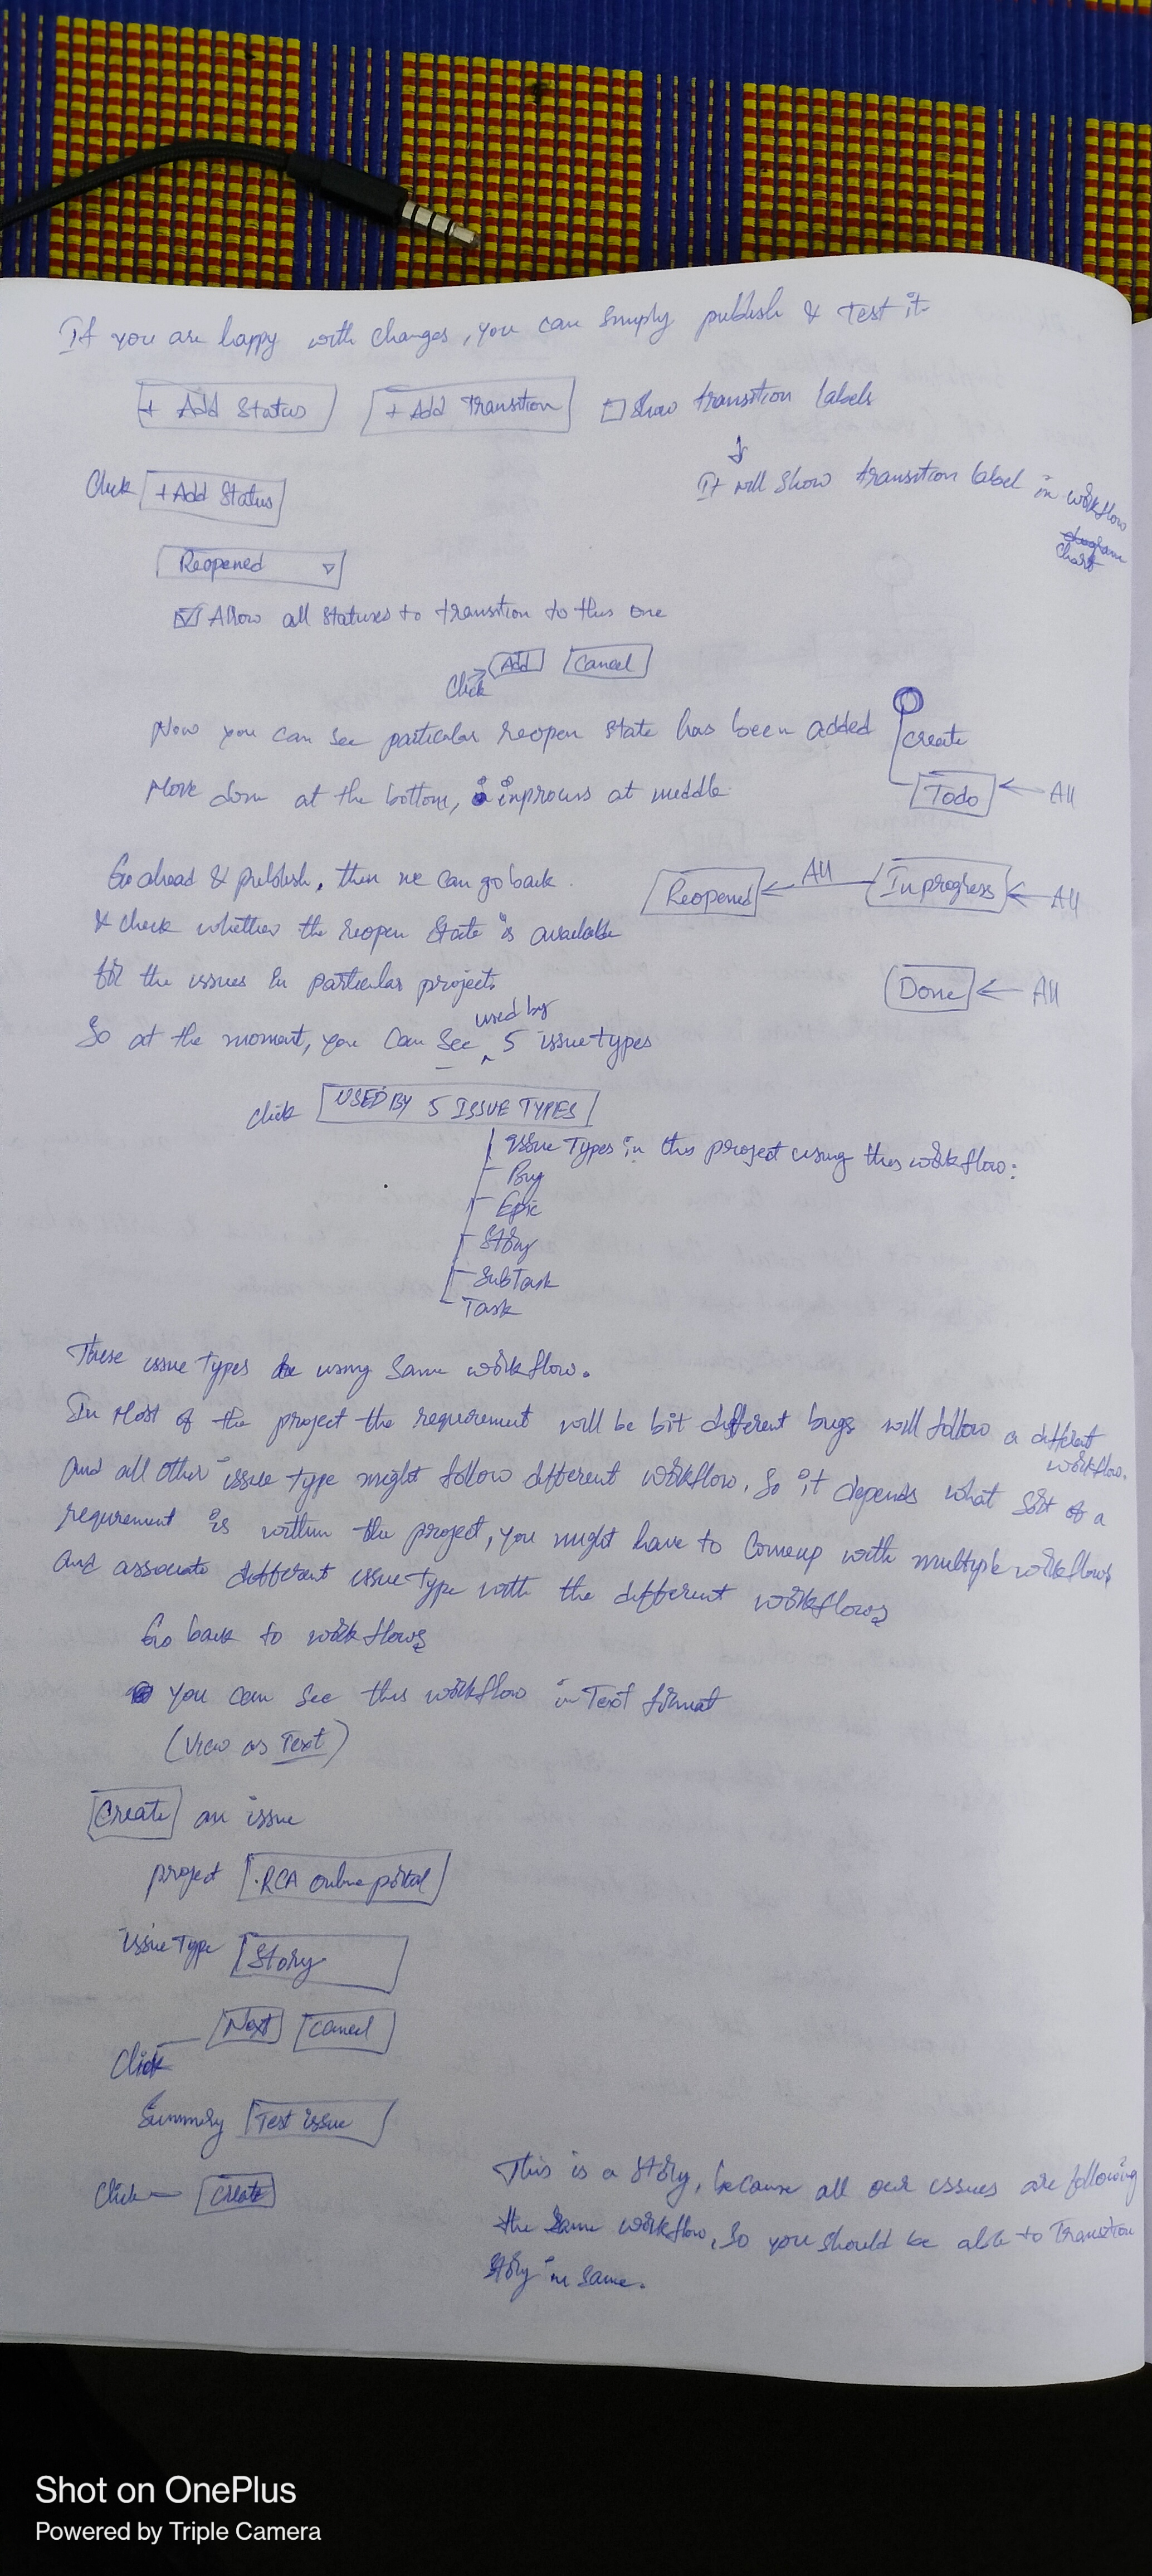 If you are happy with changes, you can simply publish & Test it
+ Add Status + Add Transition Show transition labels
It will show transition label in workflow
chart
Click +Add Status
Reopened
Allow all statuses to transition to this one
Add Cancel
Click
Now you can see particular reopen state has been added
Move done at the bottom, inprocess at middle
create
Todo All
Reopened All Inprogress All
Done All
Go ahead & publish, then we can go back
& check whether the reopen state is available
for the issues in particular project
So at the moment, you can see used by 5 issue types
click USED BY 5 ISSUE TYPES
Issue Types in this project using this workflow:
Bug
Epic
Story
SubTask
Task
These issue types using same workflow.
In Most of the project the requirement will be bit different bugs will follow a different workflow.
And all other issue type might follow different workflow, So it depends what sort of a
requirement is within the project, you might have to comeup with multiple workflows
and associate different issue type with the different workflows
Go back to workflows
You can see this workflow in Text format
(View as Text)
Create an issue
project RCA online portal
issue Type Story
Next Cancel
Click
Summery Test issue
Click Create
This is a story, because all our issues are following
the same workflow, So you should be able to Transition
story in same.
Shot on OnePlus
Powered by Triple Camera